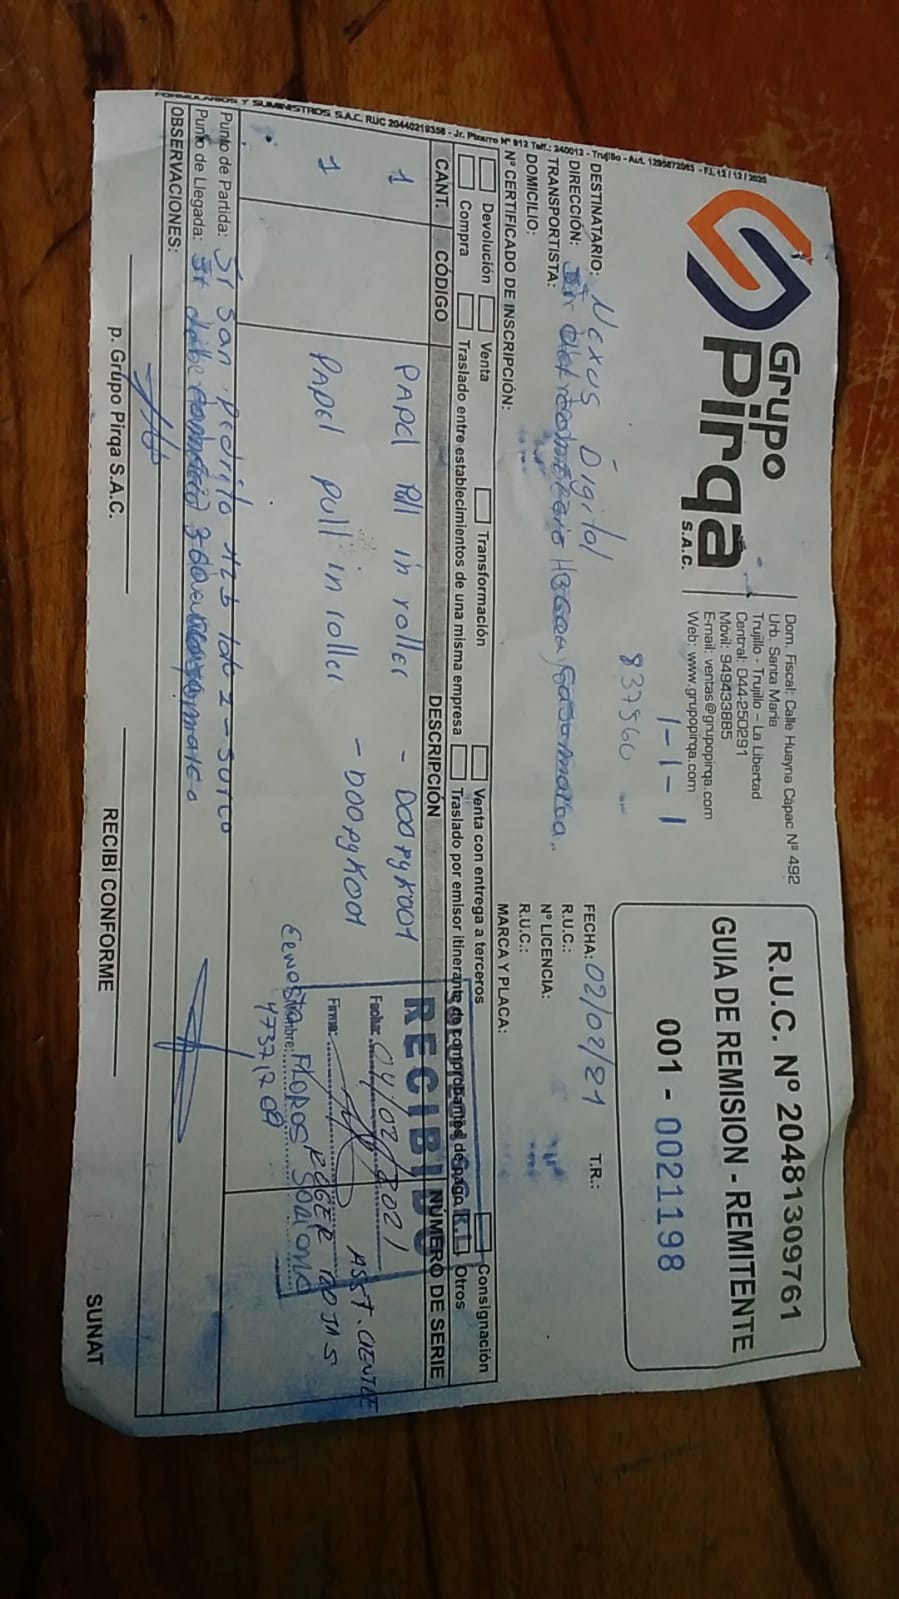 Grupo
Pirqa
S.A.C.
Dom. Fiscal: Calle Huayna Cápac Nº 492
Urb. Santa María
Trujillo - Trujillo - La Libertad
Central: 044-250291
Móvil: 949433885
E-mail: ventas@grupopirqa.com
Web: www.grupopirqa.com
1-1-1
837560
R.U.C. Nº 20481309761
GUIA DE REMISION - REMITENTE
001 - 0021198
DESTINATARIO: Nexus Digital
FECHA: 02/02/21 T.R.:
DIRECCIÓN: Jr
R.U.C.:
TRANSPORTISTA:
Nº LICENCIA:
DOMICILIO:
R.U.C.:
Nº CERTIFICADO DE INSCRIPCIÓN:
MARCA Y PLACA:
Devolución Venta Transformación Venta con entrega a terceros Consignación
Compra Traslado entre establecimientos de una misma empresa Traslado por emisor itinerante de comprobantes de pago Otros
CANT. CÓDIGO DESCRIPCIÓN NÚMERO DE SERIE
1 PAPel Pull in roller - D00pyk001
1 PAPel pull in roller - D00pyk001
RECIBIDO
Fecha: 04/02/2021
Firma:
Nombre: ROGER ROJAS
ASST. CLIENTE
47371209
Punto de Partida: Jr San Pedrito 123 - Surco
Punto de Llegada: Jr
OBSERVACIONES:
p. Grupo Pirqa S.A.C.
RECIBÍ CONFORME
SUNAT
FORMULARIOS Y SUMINISTROS S.A.C. RUC 20440219358 - Jr. Pizarro Nº 912 Telf.: 240012 - Trujillo - Aut. 1295872063 - F.I. 12 / 12 / 2020